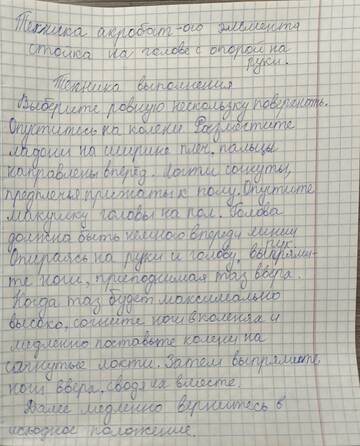 Техника акробат-ого элемента
стойка на голове с опорой на
руки.
Техника выполнения
Выберите ровную нескользку поверхность.
Опуститесь на колени. Разместите
ладони на ширине плеч, пальцы
направлены вперед. Локти согнуты,
предплечья прижаты к полу. Опустите
макушку головы на пол. Голова
должна быть немного впереди линии
рук
Опираясь на руки и голову, выпрями-
те ноги, приподнимая таз вверх.
Когда таз будет максимально
высоко, согните ноги в коленях и
медленно поставьте колени на
согнутые локти. Затем выпрямите
ноги вверх, сводя их вместе.
Далее медленно вернитесь в
исходное положение.